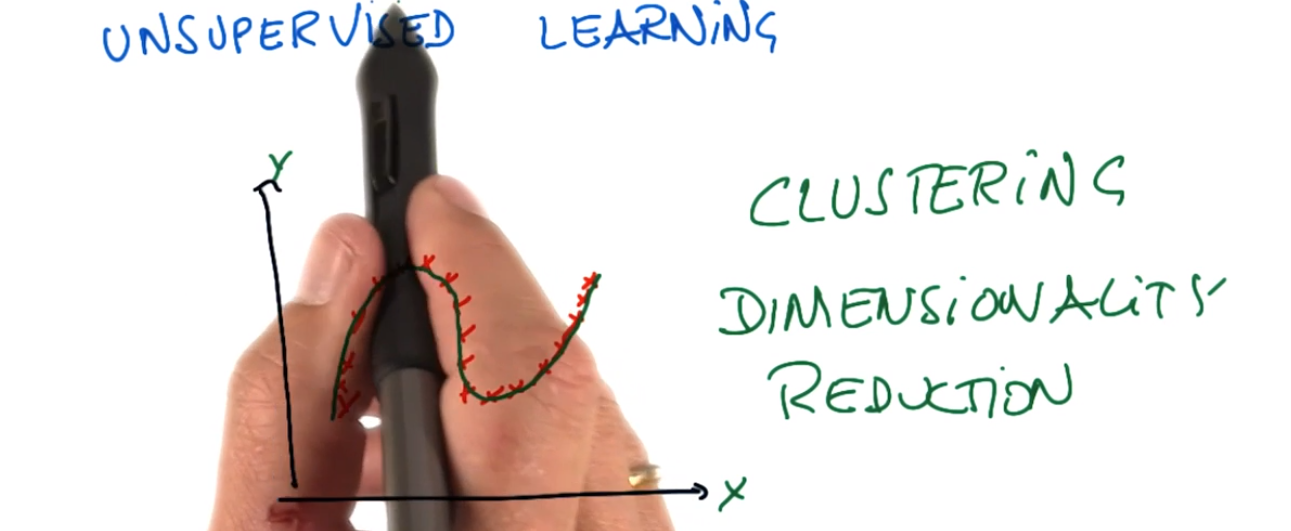 UNSUPERVISED LEARNING
Y
CLUSTERING
DIMENSIONALITY
REDUCTION
X